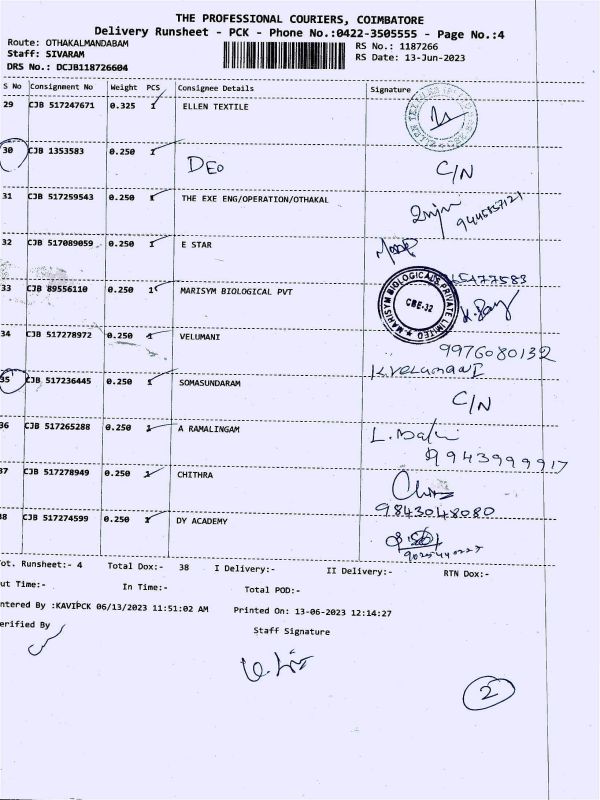 THE PROFESSIONAL COURIERS, COIMBATORE
Delivery Runsheet - PCK - Phone No.:0422-3505555 - Page No.:4
Route: OTHAKALMANDABAM
RS No.: 1187266
Staff: SIVARAM
RS Date: 13-Jun-2023
DRS No.: DCJB118726604
S No Consignment No Weight PCS Consignee Details Signature
29 CJB 517247671 0.325 1 ELLEN TEXTILE
30 CJB 1353583 0.250 1 DEO C/N
31 CJB 517259543 0.250 1 THE EXE ENG/OPERATION/OTHAKAL
32 CJB 517089059 0.250 1 E STAR
33 CJB 89556110 0.250 1 MARISYM BIOLOGICAL PVT
MARISYM BIOLOGICALS PRIVATE LIMITED
CBE-32
34 CJB 517278972 0.250 1 VELUMANI
9976080132
K.VELUMANI
35 CJB 517236445 0.250 1 SOMASUNDARAM C/N
36 CJB 517265288 0.250 1 A RAMALINGAM
9943999917
37 CJB 517278949 0.250 1 CHITHRA
9843048080
38 CJB 517274599 0.250 1 DY ACADEMY
ot. Runsheet:- 4 Total Dox:- 38 I Delivery:- II Delivery:- RTN Dox:-
ut Time:- In Time:- Total POD:-
ntered By :KAVIPCK 06/13/2023 11:51:02 AM Printed On: 13-06-2023 12:14:27
erified By Staff Signature
2